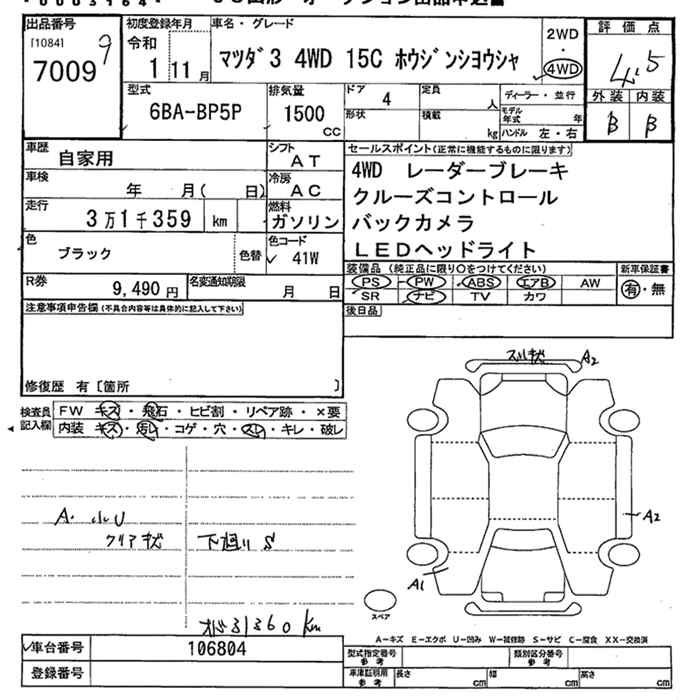 出品番号
[1084]
7009
9
初度登録年月
令和
1 11 月
車名・グレード
マツダ3 4WD 15C ホウジンシヨウシャ
2WD
・
4WD
評価点
4.5
外装 内装
B B
型式
6BA-BP5P
排気量
1500
cc
ドア 4
定員 人
形状
積載 kg
ディーラー・並行
モデル年式 年
ハンドル 左・右
車歴
自家用
シフト
AT
車検
年 月( 日)
冷房
AC
走行
3万1千359 km
燃料
ガソリン
色
ブラック
色替
色コード
41W
R券
9,490 円
名変通知期限
月 日
セールスポイント(正常に機能するものに限ります)
4WD レーダーブレーキ
クルーズコントロール
バックカメラ
LEDヘッドライト
装備品(純正品に限り○をつけてください)
PS PW ABS エアB AW
SR ナビ TV カワ
新車保証書
有・無
後日品
注意事項申告欄(不具合内容等は具体的に記入して下さい)
修復歴 有〔箇所 〕
検査員記入欄
FW キズ・飛石・ヒビ割・リペア跡・×要
内装 キズ・汚レ・コゲ・穴・スレ・キレ・破レ
A・小U
クリアキズ
下廻り S
オド31360km
スリキズ A2
A2
A1
スペア
A-キズ E-エクボ U-凹み W-補修跡 S-サビ C-腐食 XX-交換済
車台番号
106804
登録番号
型式指定番号
参考
類別区分番号
参考
車庫証明用
参考
長さ cm
幅 cm
高さ cm